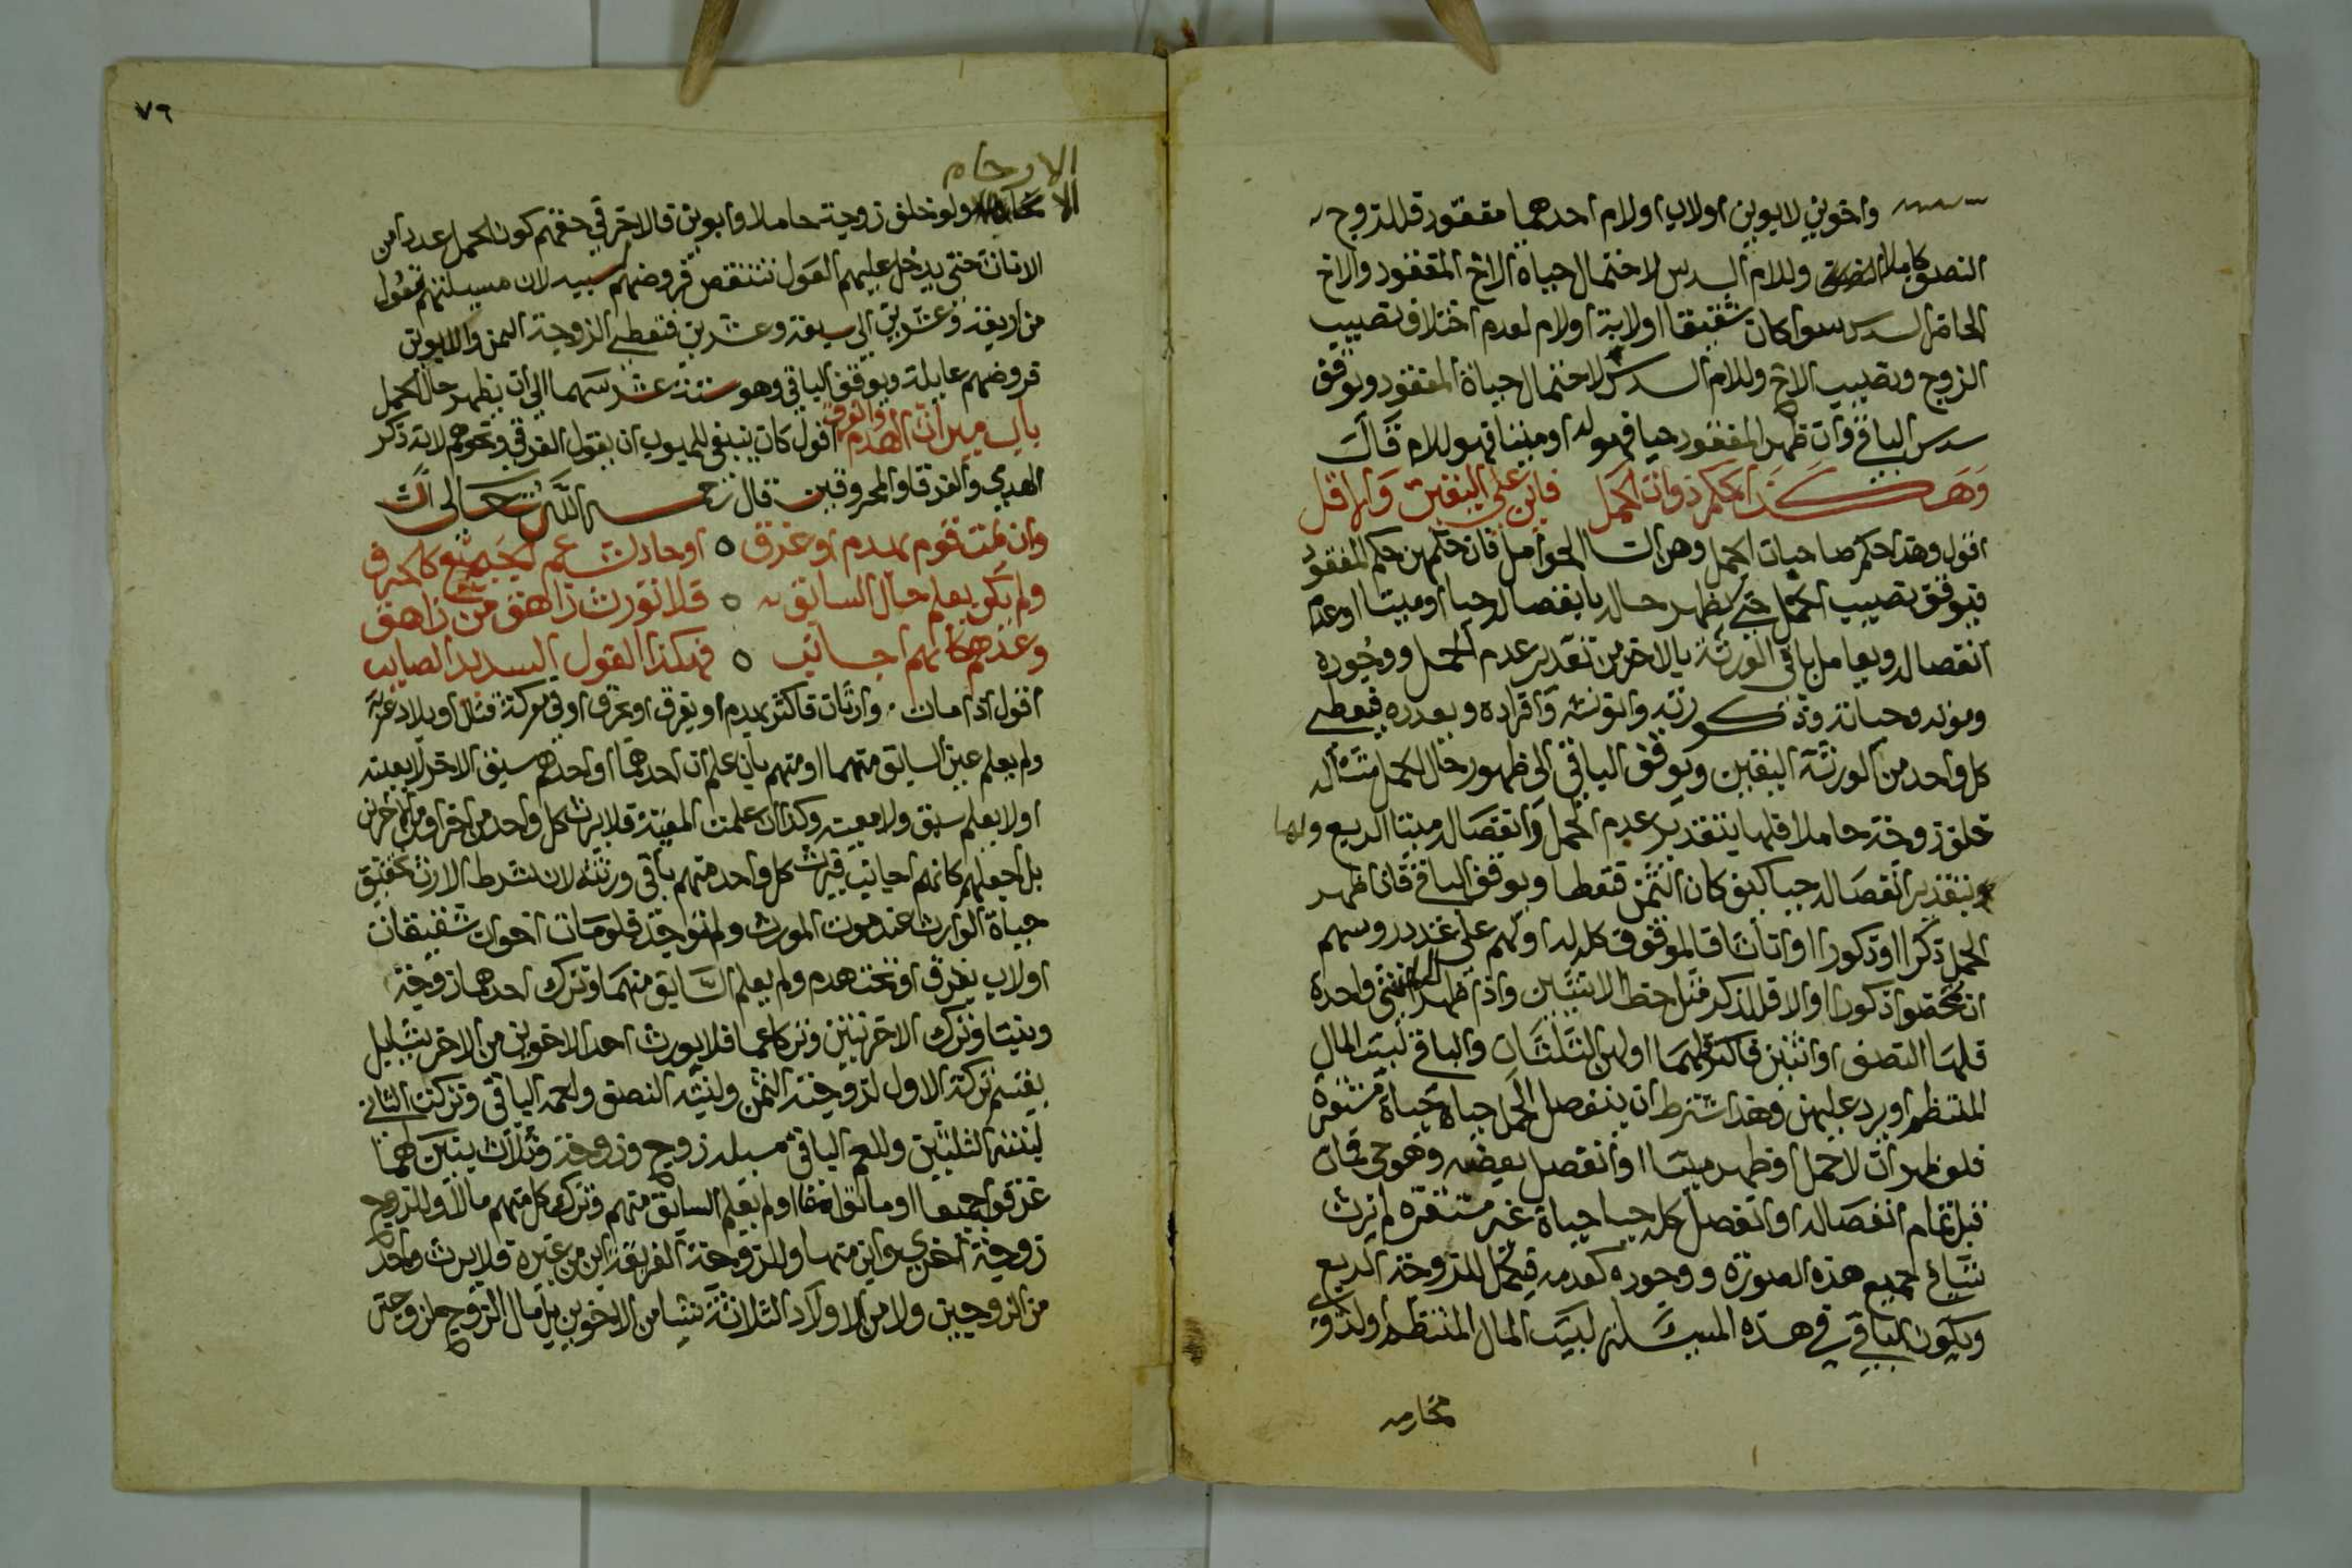 واخوين لابوين اولاب اولام احدهما مفقود فللزوج
النصف كاملا وللام السدس لاحتمال حياة الاخ المفقود والاخ
الحاضر السدس سوا كان شقيقا اولاب اولام لعدم اختلاف نصيب
الزوج ونصيب الاخ وللام السدس لاحتمال حياة المفقود ويوقف
سدس الباقي وان ظهر المفقود حيا فهو له اوميتا فهو للام قال
وهكذا حكم ذوات الحمل فابن على اليقين والاقل
اقول وهذا حكم صاحبات الحمل وهن النسا الحوامل فان حكمهن حكم المفقود
فيوقف نصيب الحمل حتى يظهر حاله بانفصاله حيا اوميتا اوعدم
انفصاله ويعامل باقي الورثة بالاضر من تقدير عدم الحمل ووجوده
وموته وحياته وذكورته وانوثته وافراده وتعدده فيعطى
كل واحد من الورثة اليقين ويوقف الباقي الى ظهور حال الحمل مثاله
خلف زوجة حاملا فلها بتقدير عدم الحمل وانفصاله ميتا الربع ولها
بتقدير انفصاله حيا كيف كان الثمن فتعطا ويوقف الباقي فان ظهر
الحمل ذكرا اوذكورا اواناثا فالموقوف كله له اولهم على عدد روسهم
ان تمحضوا ذكورا اولا فللذكر مثل حظ الانثيين واذا ظهر انثى واحدة
فلها النصف اواثنتين فاكثر فلهما اولهن الثلثان والباقي لبيت المال
المنتظم اويرد عليهن وهذا شرط ان ينفصل الحمل حياة مستقرة
فلو ظهر ان لاحمل اوظهر ميتا اوانفصل بعضه وهو حي فمات
قبل تمام انفصاله اوانفصل كله حيا حياة غير مستقرة لم يرث
شيا في جميع هذه الصورة ووجوده كعدمه فيكمل للزوجة الربع
ويكون الباقي في هذه المسئلة لبيت المال المنتظم اولذوي
محارمه
٧٦
الارحام
ولو خلف زوجة حاملا وابوين فالاضر في حقهم كون الحمل عددا من
الاناث حتى يدخل عليهم العول فتنقص فروضهم بسببه لان مسيلتهم تعول
من اربعة وعشرين الى سبعة وعشرين فتعطى الزوجة الثمن والابوين
فروضهم عايلة ويوقف الباقي وهو ستة عشر سهما الى ان يظهر حال الحمل
باب ميراث الهدم والغرقى اقول كان ينبغي للمبوب ان يقول الغرقى ونحوهم لانه ذكر
الهدمى والغرقا والمحروقين قال رحمه الله تعالى
وان يمت قوم بهدم اوغرق ٥ اوحادث عم الجميع كالحرق
ولم يكن يعلم حال السابق ٥ فلا تورث زاهق من زاهق
وعدهم كانهم اجانب ٥ فهكذا القول السديد الصايب
اقول اذا مات وارثان فاكثر بهدم اوبغرق اوبحرق اوفي معركة قتال اوبلاد غربة
ولم يعلم عين السابق منهما اومنهم بان علم ان احدهما اواحدهم سبق الاخر لابعينه
اولايعلم سبق ولامعية وكذا ان علمت المعية فلايرث كل واحد من الاخر اومن الاخرين
بل اجعلهم كانهم اجانب فيرث كل واحد منهم باقي ورثته لان شرط الارث تحقيق
حياة الوارث عند موت المورث ولم توجد فلو مات اخوان شقيقان
اولاب بغرق اوتحت هدم ولم يعلم السابق منهما وترك احدهما زوجة
وبنتا وترك الاخر بنتين وتركا عما فلا يورث احد الاخوين من الاخر شي بل
يقسم تركة الاول لزوجته الثمن ولبنته النصف ولعمه الباقي وتركة الثاني
لبنتيه الثلثين وللعم الباقي مسيله زوج وزوجة وثلاث بنين لهما
غرقوا جميعا اوماتوا معا اولم يعلم السابق منهم وترك كل منهم مالا وللزوج
زوجة اخرى وابن منها وللزوجة الغريقة ابن من غيره فلايرث واحد
من الزوجين ولا من الاولاد الثلاثة شيا من الاخرين بل مال الزوج لزوجته